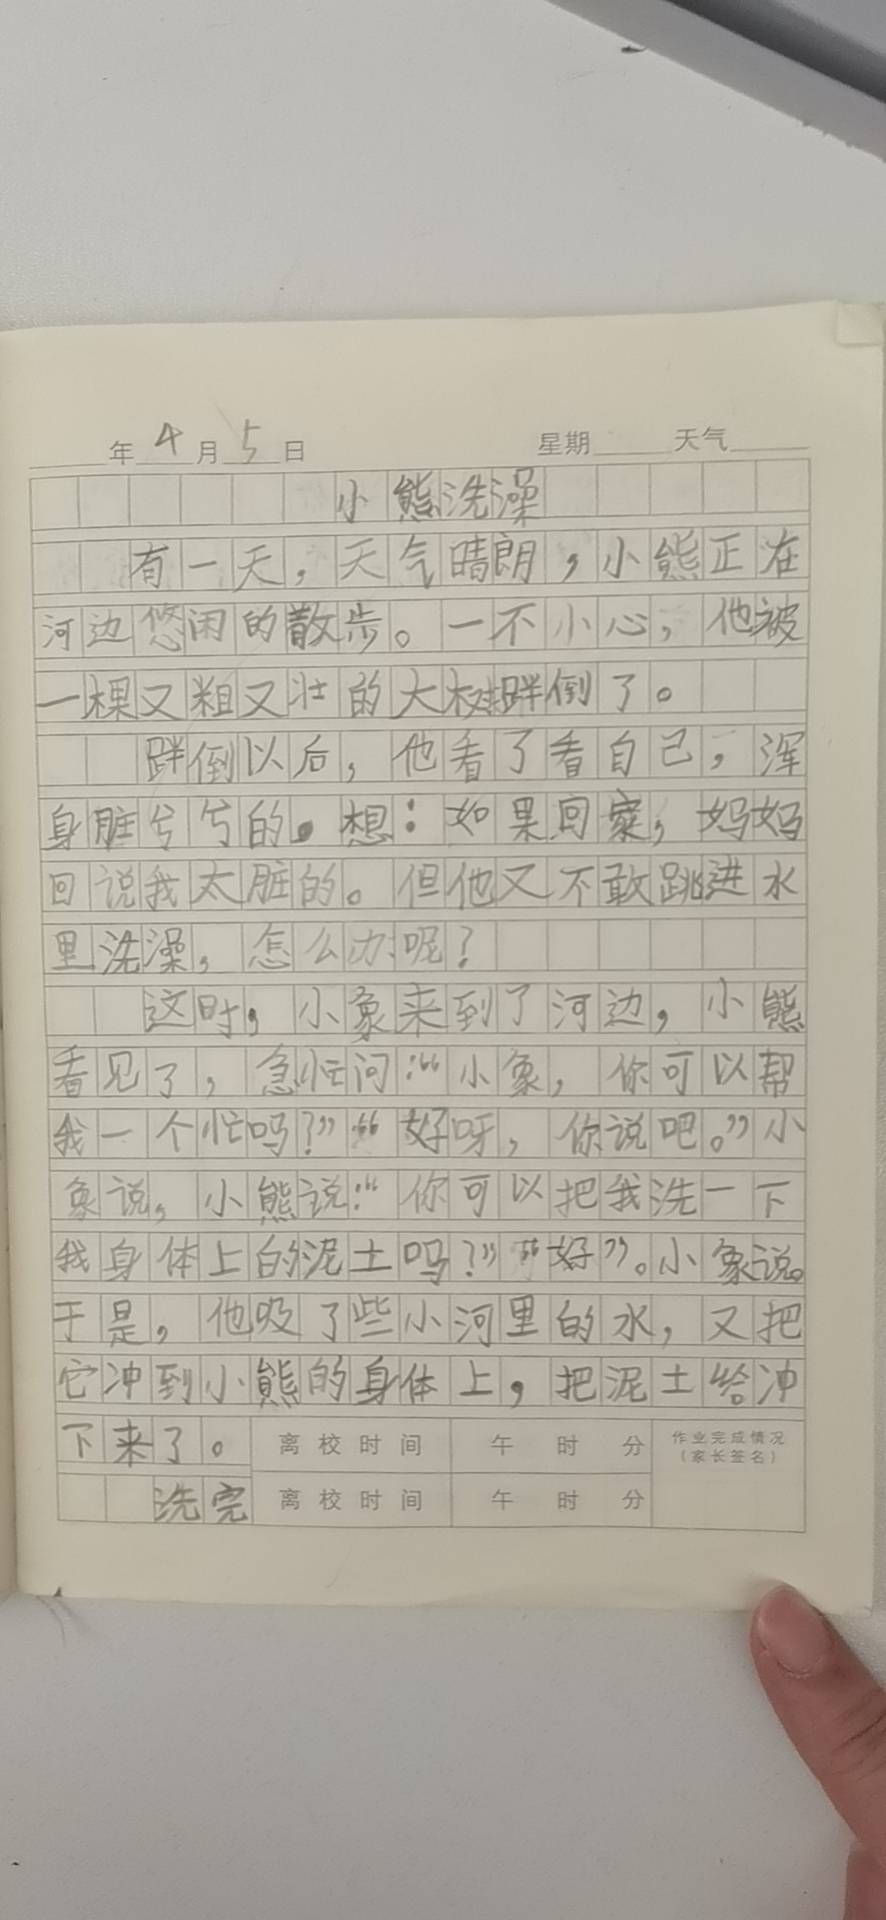 年4月5日 星期 天气
小熊洗澡
有一天，天气晴朗，小熊正在
河边悠闲的散步。一不小心，他被
一棵又粗又壮的大树绊倒了。
绊倒以后，他看了看自己，浑
身脏兮兮的。想：如果回家，妈妈
回说我太脏的。但他又不敢跳进水
里洗澡，怎么办呢？
这时，小象来到了河边，小熊
看见了，急忙问：“小象，你可以帮
我一个忙吗？”“好呀，你说吧。”小
象说，小熊说：“你可以把我洗一下
我身体上的泥土吗？”“好”。小象说。
于是，他吸了些小河里的水，又把
它冲到小熊的身体上，把泥土给冲
下来了。 离校时间 午 时 分 作业完成情况
（家长签名）
洗完 离校时间 午 时 分